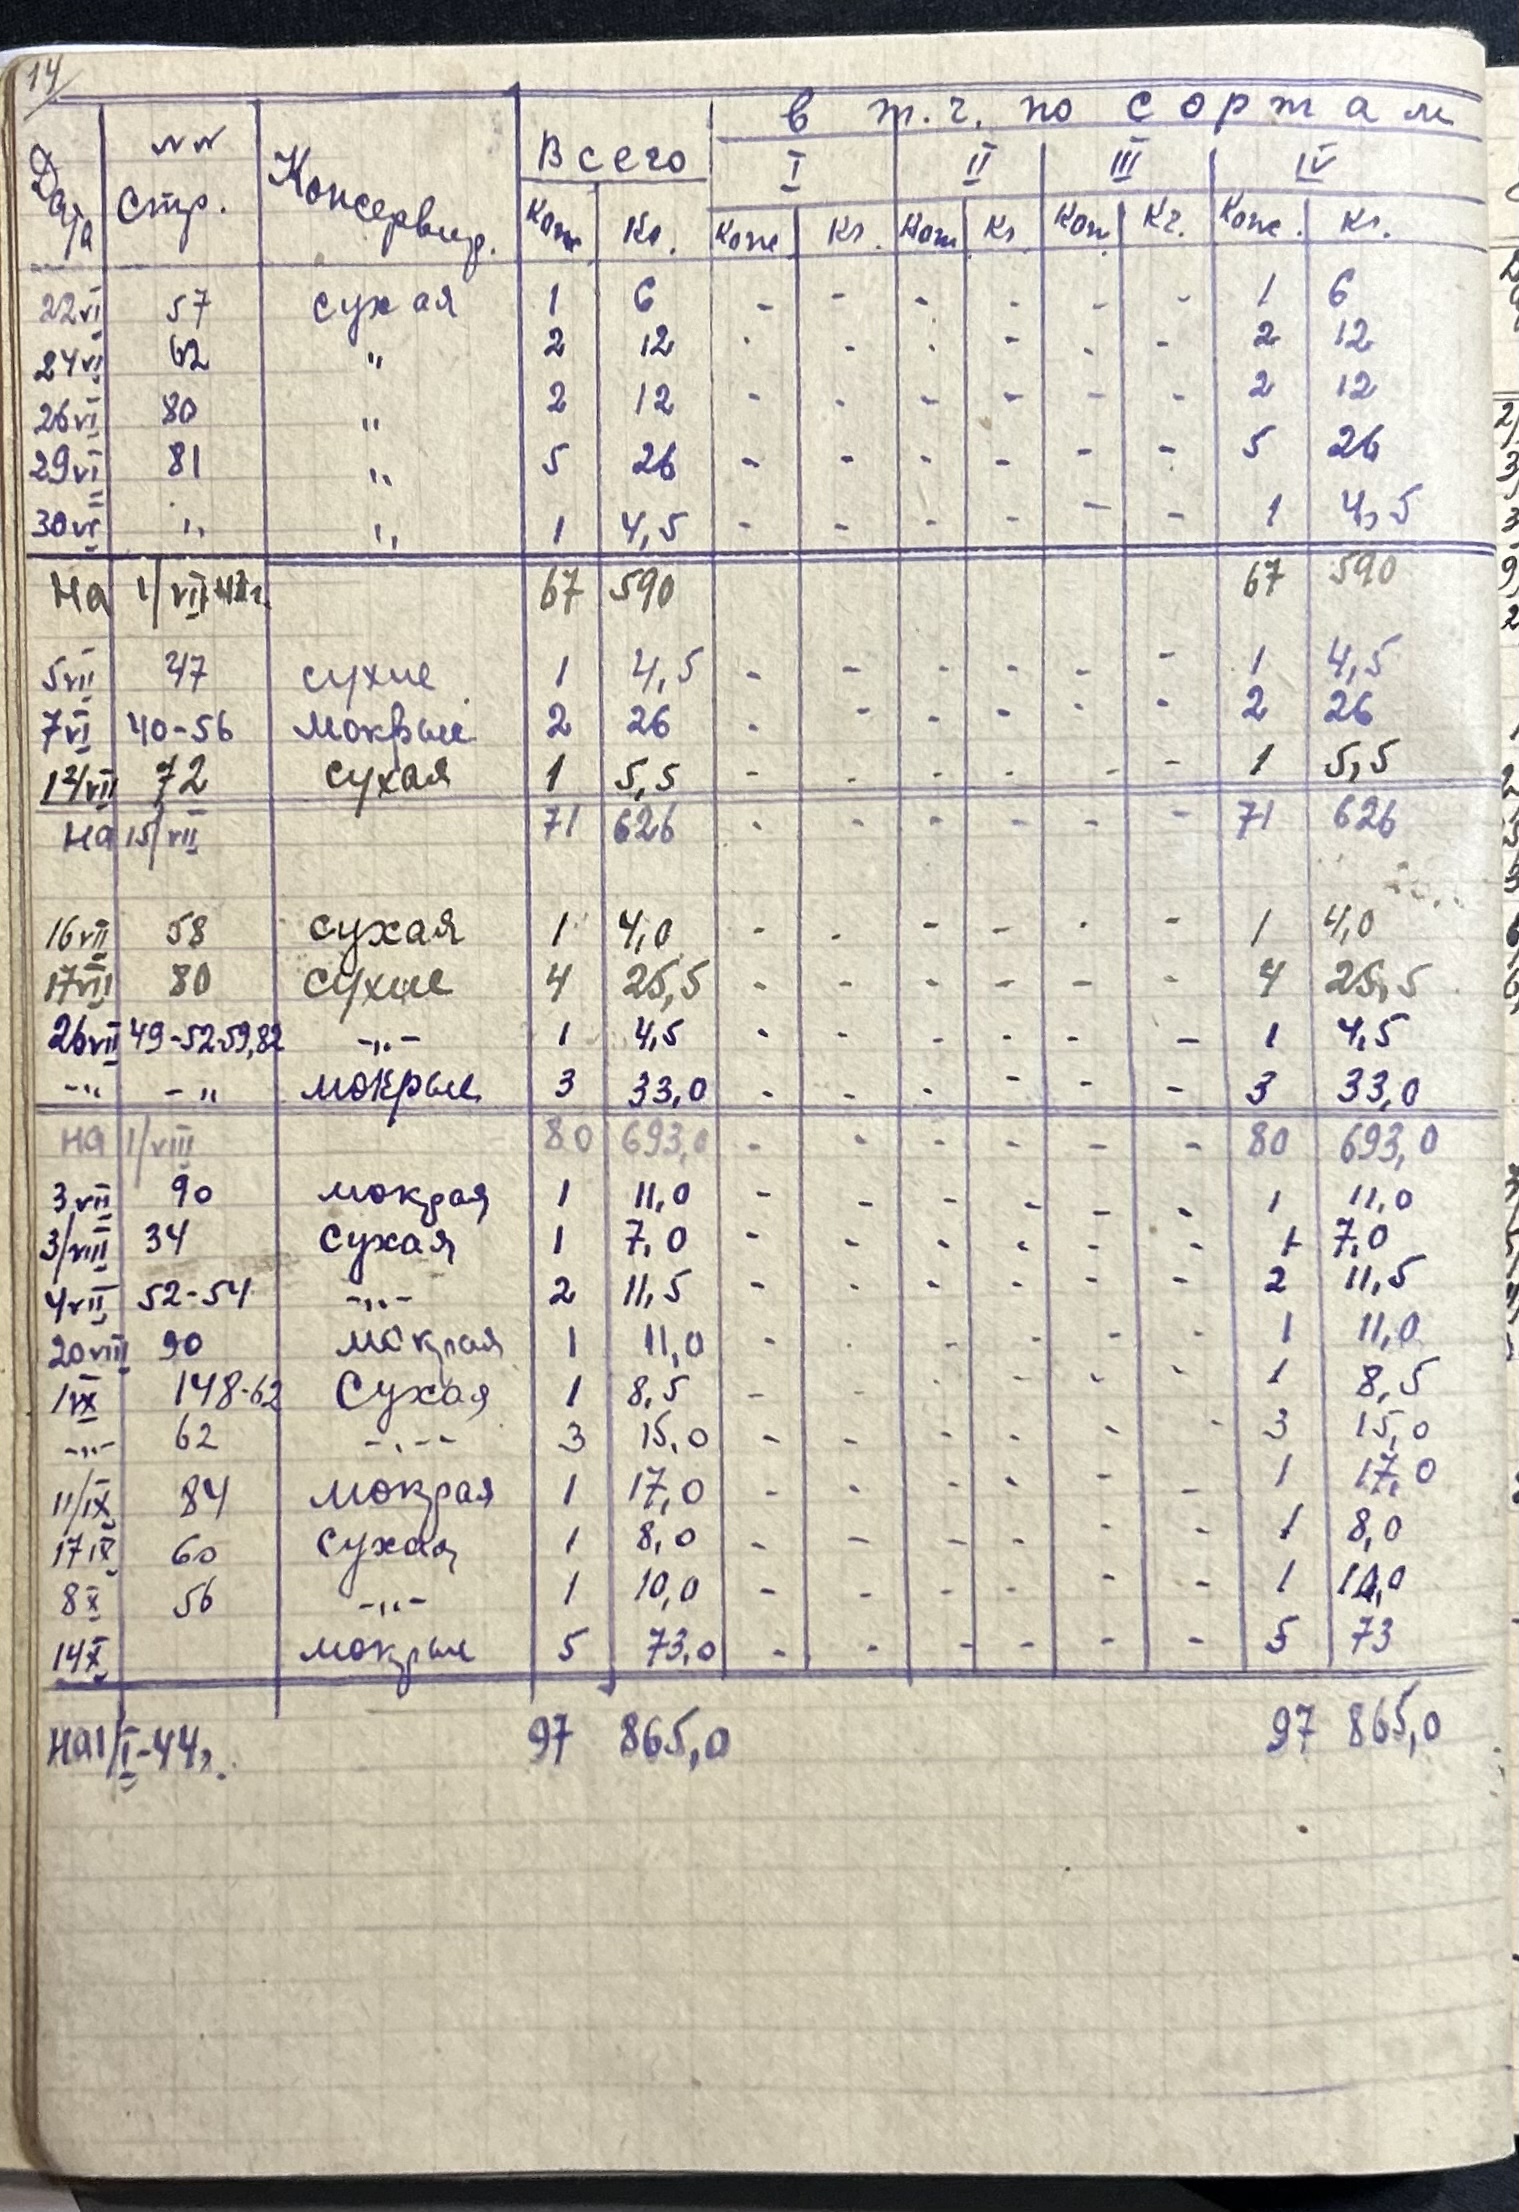 14
Дата №№ Стр. Консервир. Всего в т.ч. по сортам
I II III IV
Кож Кг. Кож Кг. Кож Кг Кож Кг. Кож. Кг.
22 VI 57 сухая 1 6 - - - - - - 1 6
24 VI 62 " 2 12 - - - - - - 2 12
26 VI 80 " 2 12 - - - - - - 2 12
29 VI 81 " 5 26 - - - - - - 5 26
30 VI " " 1 4,5 - - - - - - 1 4,5
На 1/VII 67 590 67 590
5 VII 47 сухие 1 4,5 - - - - - - 1 4,5
7 VI 40-56 мокрые 2 26 - - - - - - 2 26
12/VII 72 сухая 1 5,5 - - - - - - 1 5,5
На 15/VII 71 626 - - - - - - 71 626
16 VII 58 сухая 1 4,0 - - - - - - 1 4,0
17 VII 80 сухие 4 25,5 - - - - - - 4 25,5
26 VII 49-52-59,82 -"- 1 4,5 - - - - - - 1 4,5
-" -" мокрые 3 33,0 - - - - - - 3 33,0
На 1/VIII 80 693,0 - - - - - - 80 693,0
3 VII 90 мокрая 1 11,0 - - - - - - 1 11,0
3/VIII 34 сухая 1 7,0 - - - - - - 1 7,0
4 VII 52-54 -"- 2 11,5 - - - - - - 2 11,5
20 VIII 90 мокрая 1 11,0 - - - - - - 1 11,0
1 IX 148-62 Сухая 1 8,5 - - - - - - 1 8,5
-"- 62 -"- 3 15,0 - - - - - - 3 15,0
11/IX 84 мокрая 1 17,0 - - - - - - 1 17,0
17 IX 60 сухая 1 8,0 - - - - - - 1 8,0
8 X 56 -"- 1 10,0 - - - - - - 1 10,0
14 X мокрые 5 73,0 - - - - - - 5 73
На 1/I-44г. 97 865,0 97 865,0